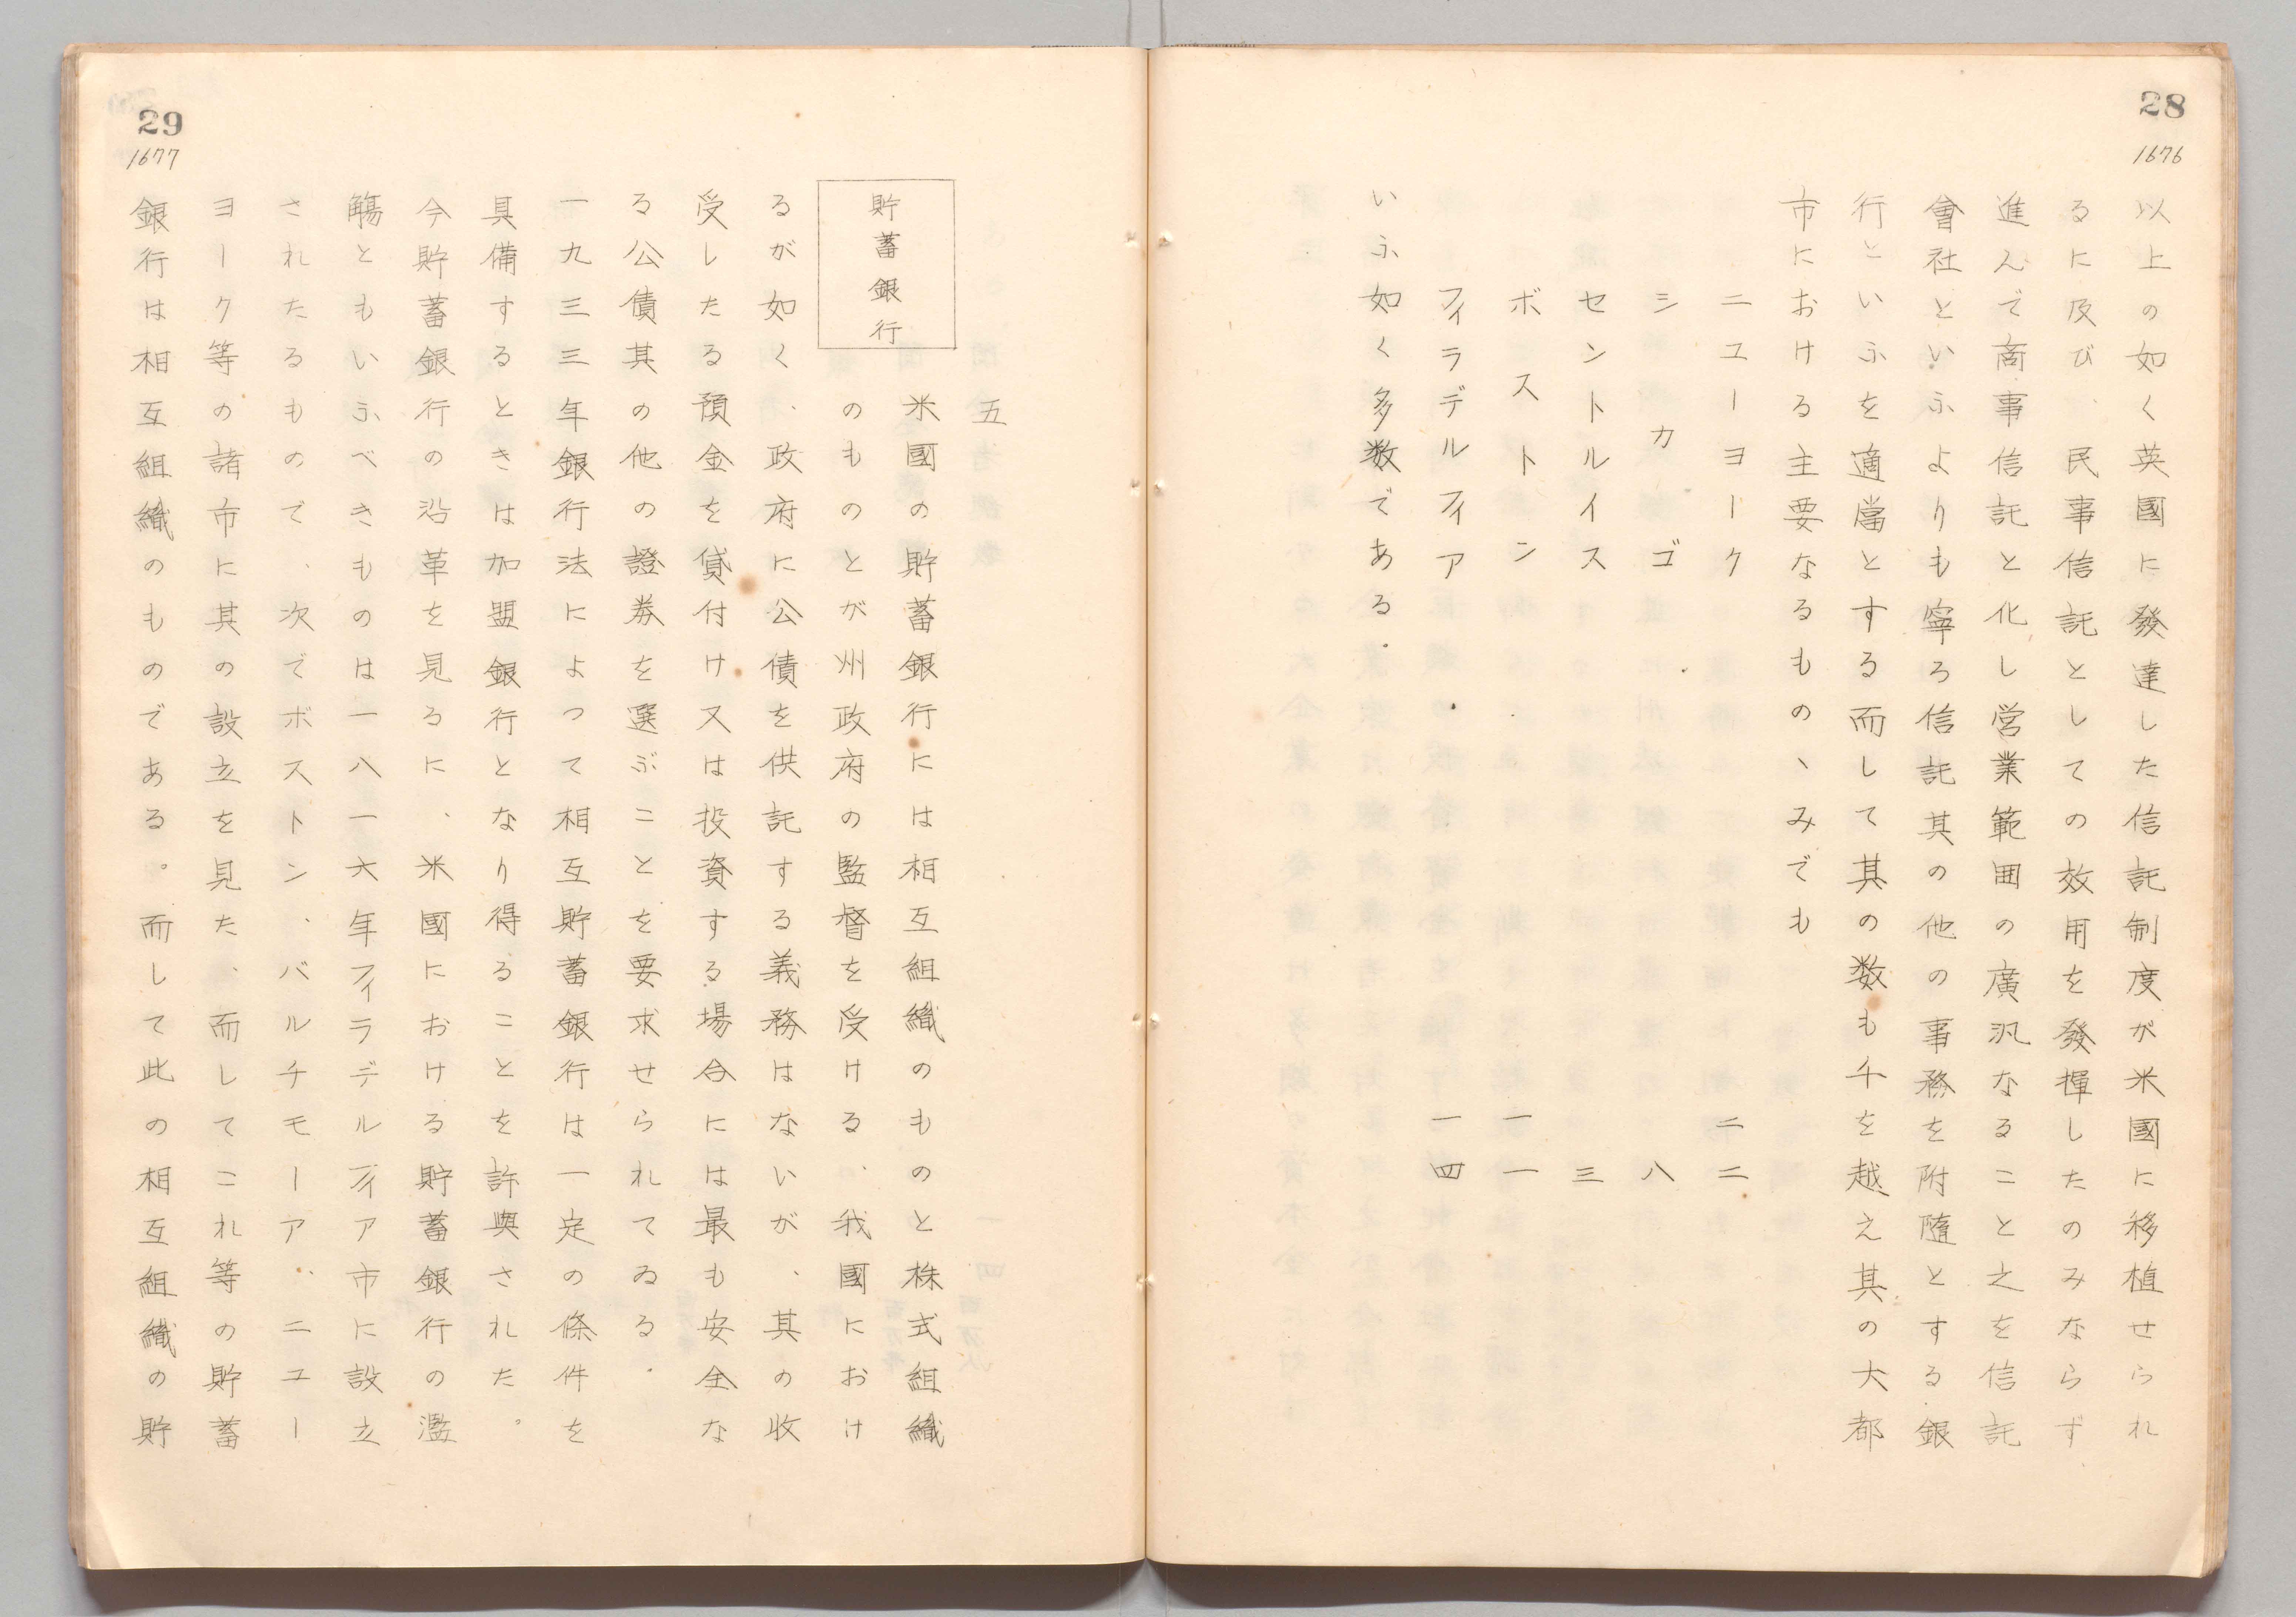 28
1676
以上の如く英國に發達した信託制度が米國に移植せられ
るに及び、民事信託としての效用を發揮したのみならず
進んで商事信託と化し営業範囲の廣汎なること之を信託
會社といふよりも寧ろ信託其の他の事務を附隨とする銀
行といふを適當とする而して其の数も千を越え其の大都
市における主要なるものヽみでも
ニユーヨーク 二二
シカゴ 八
セントルイス 三
ボストン 一一
フィラデルフィア 一四
いふ如く多数である.
29
1677
五
貯蓄銀行
米國の貯蓄銀行には相互組織のものと株式組織
のものとが州政府の監督を受ける、我國におけ
るが如く、政府に公債を供託する義務はないが、其の收
受したる預金を貸付け又は投資する場合には最も安全な
る公債其の他の證券を選ぶことを要求せられてゐる.
一九三三年銀行法によつて相互貯蓄銀行は一定の條件を
具備するときは加盟銀行となり得ることを許與された。
今貯蓄銀行の沿革を見るに、米國における貯蓄銀行の濫
觴ともいふべきものは一八一六年フィラデルフィア市に設立
されたるもので、次でボストン、バルチモーア、ニユー
ヨーク等の諸市に其の設立を見た、而してこれ等の貯蓄
銀行は相互組織のものである。而して此の相互組織の貯